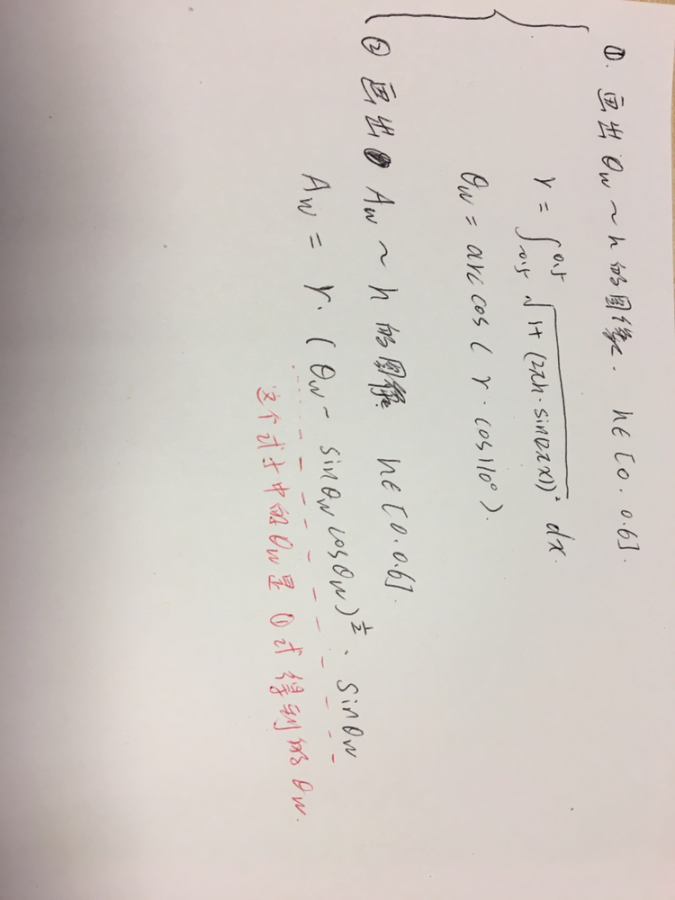 ①. 画出 θw ~ h 的图像. h∈[0. 0.6].
r = ∫_{-0.5}^{0.5} √(1+(2πh·sin(2πx))² dx.
θw = arc cos ( r · cos110° ).
② 画出 Aw ~ h 的图像 h∈[0.0.6].
Aw = r · ( θw - sinθw cosθw )^{1/2} · sinθw
这个式子中的 θw 是 ①式得到的 θw.